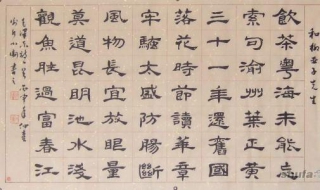 和柳亞子先生
飲茶粵海未能忘
索句渝州葉正黄
三十一年還舊國
落花時節讀華章
牢騷太盛防腸斷
風物長宜放眼量
莫道昆明池水淺
觀魚勝過富春江